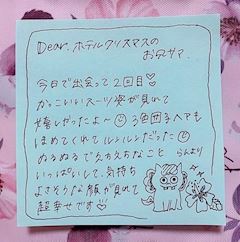 Dear. ホテルクリスマスの
お兄サマ
今日で出会って2回目♡
かっこいいスーツ姿が見れて
嬉しかったよ〜☺ 3色団子ヘアも
ほめてくれてルンルンだった☺
ぬるぬるでえちえちなこと
いっぱいして、気持ち
よさそうな顔が見れて
超幸せです♡
らんより